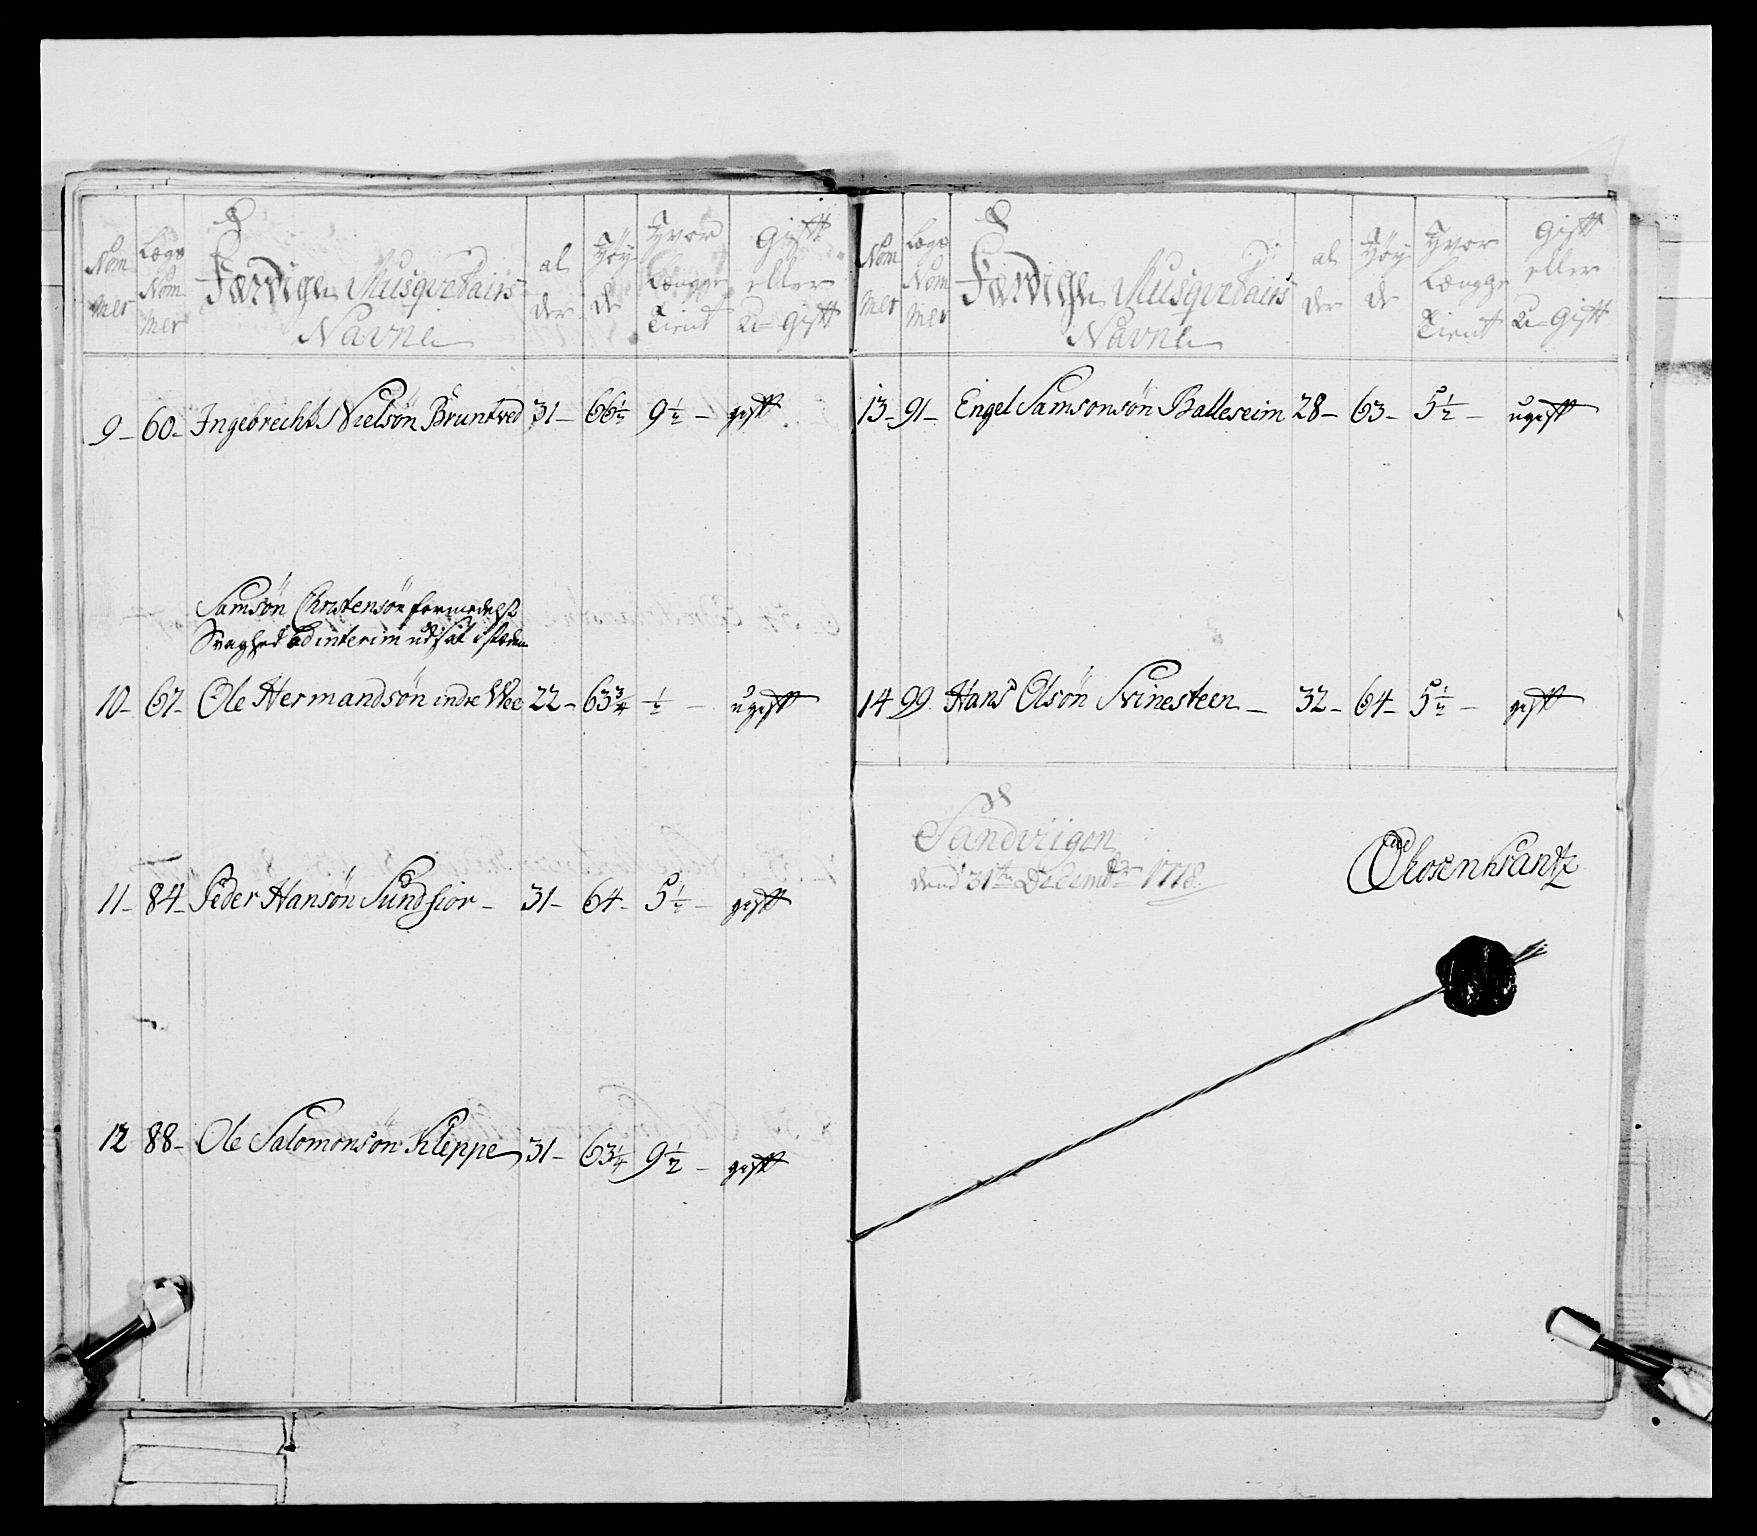 Nom mer
Lægs Nom mer
Færdige Musqvetairs Navne
al der
Høy de
Hvor Længge Tient
Gift eller U-Gift
9- 60- Ingebrecht Nielsøn Bruntved 31- 66½ 9½- gift
Samsøn Christensøn formedelst
Svaghed ad interim udsat isteden
10- 67- Ole Hermandsøn indre Wee 22- 63¾ ½- ugift
11- 84- Peder Hansøn Sundfior- 31- 64- 5½- gift
12 88- Ole Salomonsøn Kleppe 31- 63¼ 9½- gift
Nom mer
Lægs Nom mer
Færdige Musqvetairs Navne
al der
Høy de
Hvor Længge Tient
Gift eller U-Gift
13- 91- Engel Samsonsøn Balleseim 28- 63- 5½- ugift
14 99 Hans Olsøn Svinesteen- 32- 64- 5½- gift
Sandviigen
dend 31te Decembr 1778.
Rosenkrantz